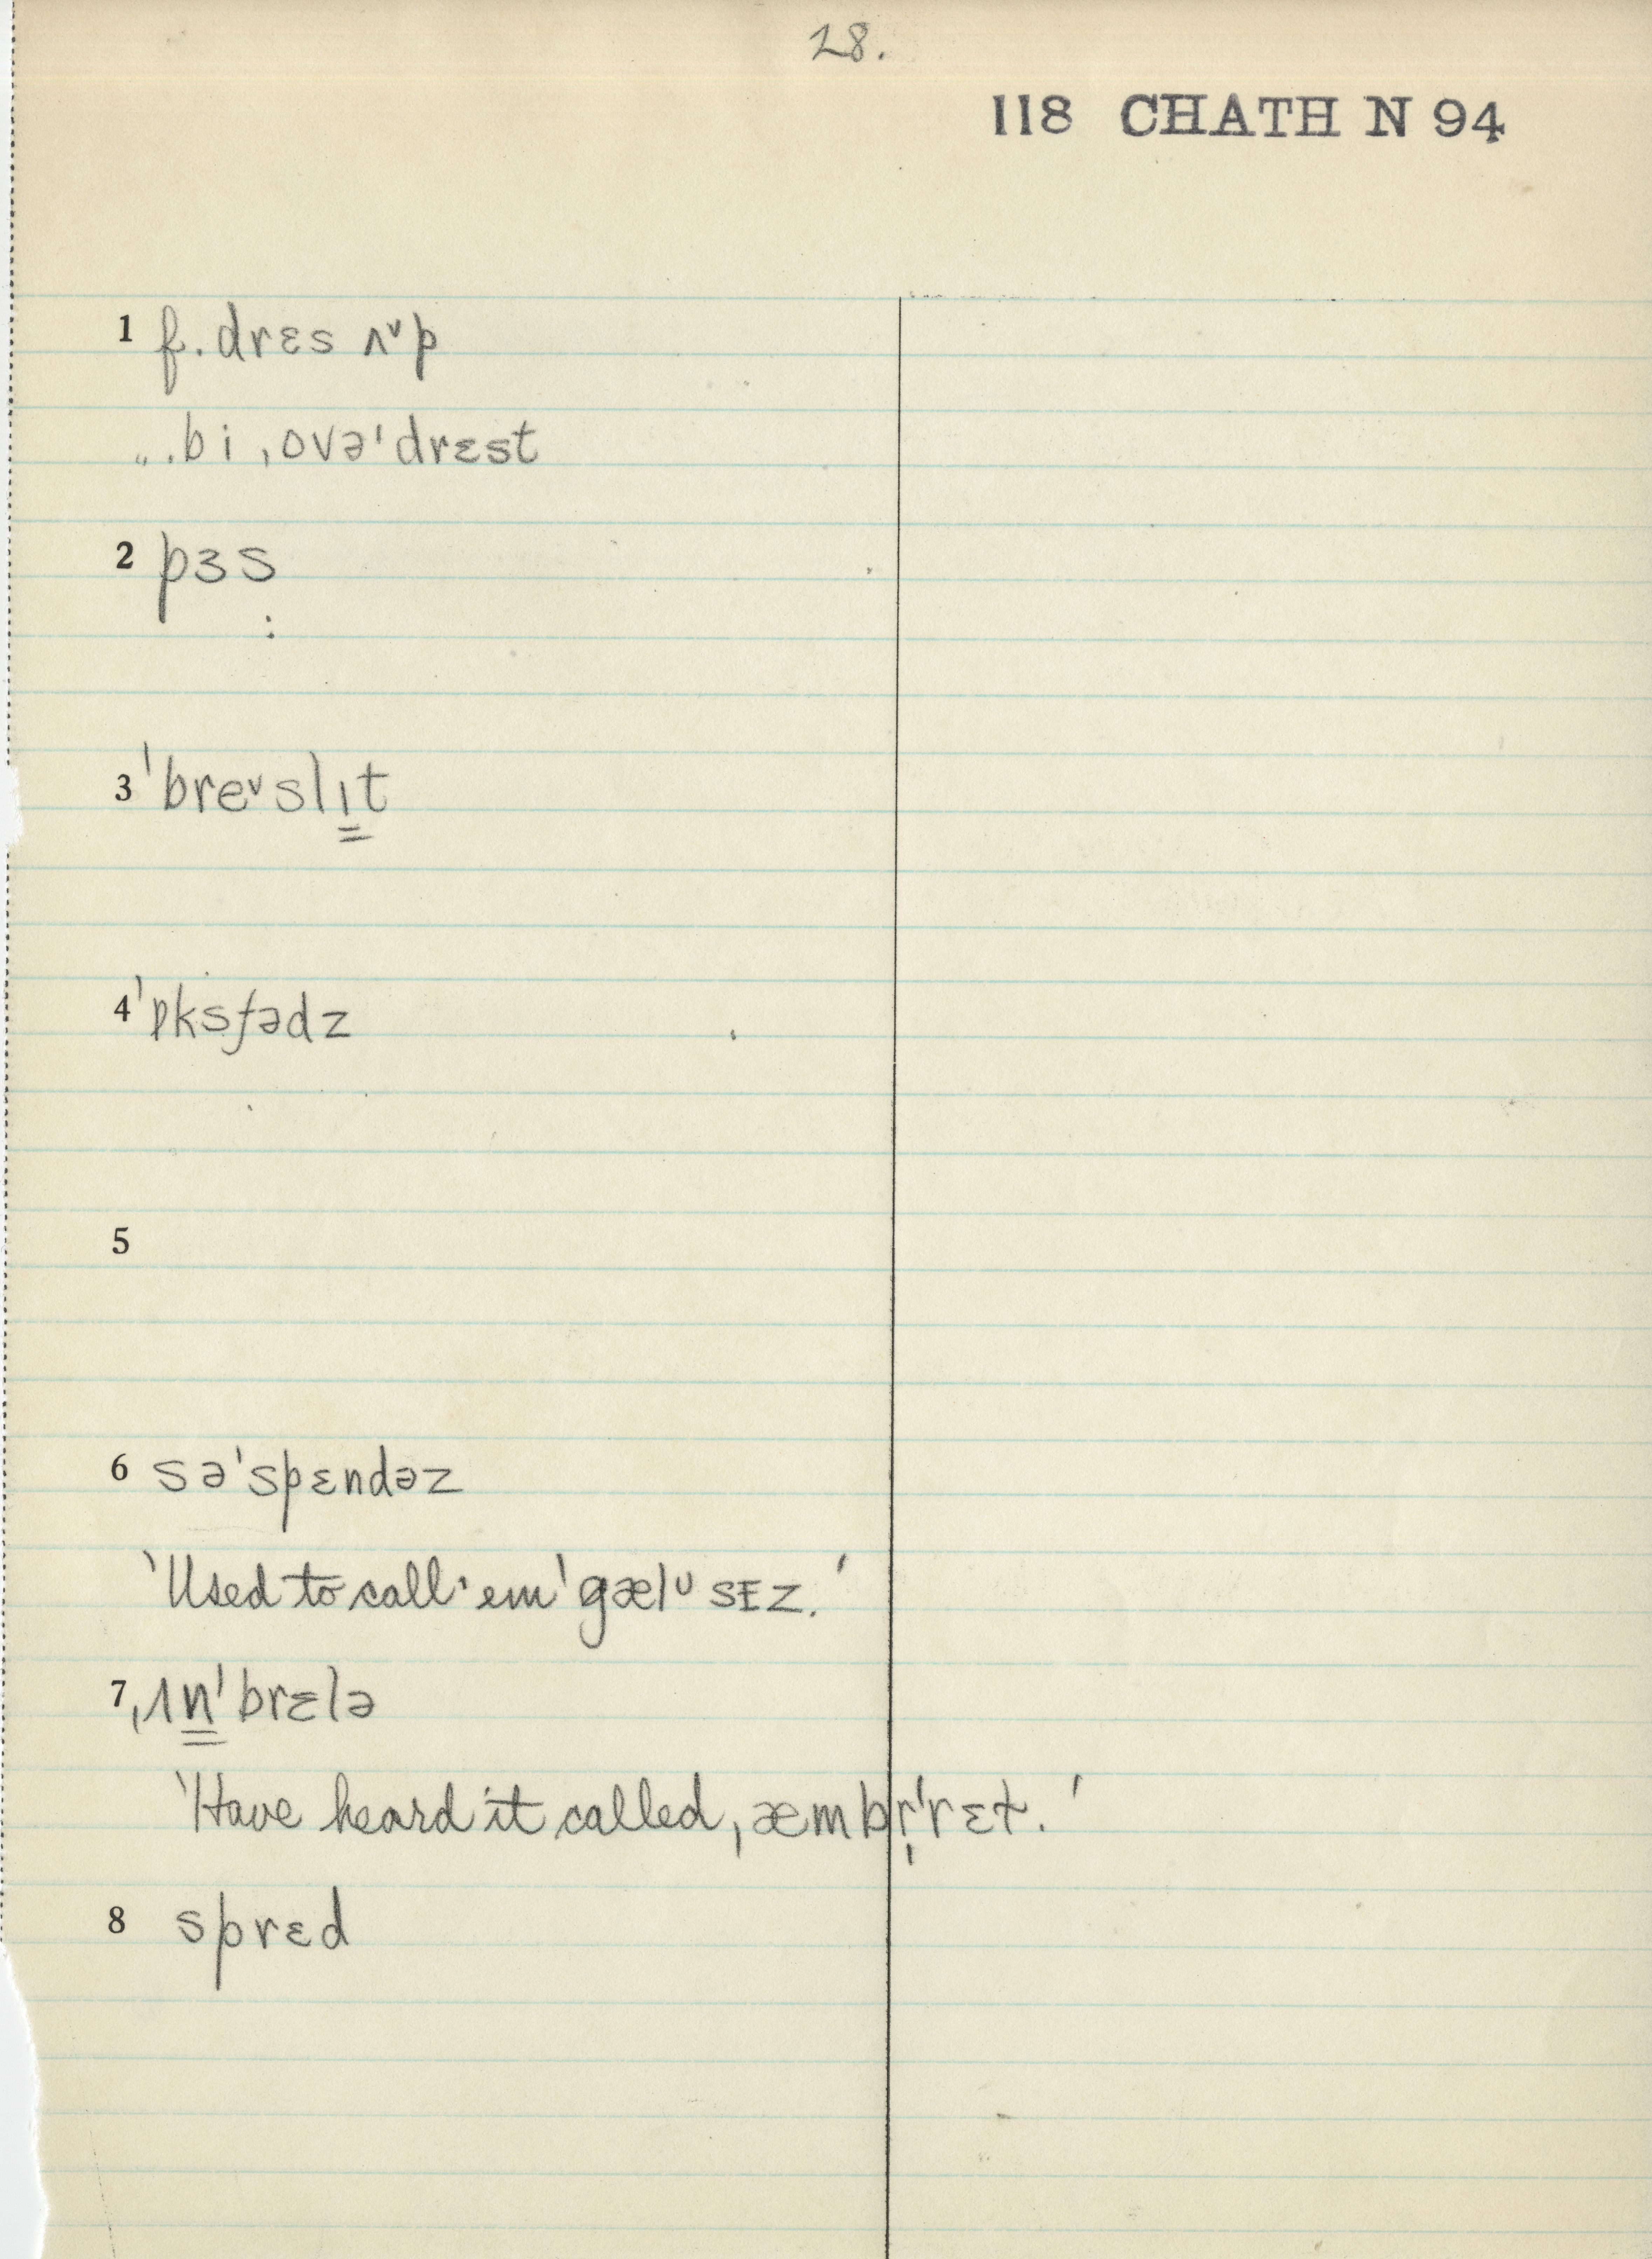 28.
118 CHATH N 94
1 f. drɛs ʌᵛp
... bi ˌovəˈdrɛst
2 pɜs
3 ˈbreᵛslɪt
4 ˈɒksfədz
5
6 səˈspɛndəz
'Used to call 'em ˈgælᶸsᴇz.'
7 ˌʌnˈbrɛlə
'Have heard it called ˌæmbr̩ˈrɛt.'
8 sprɛd